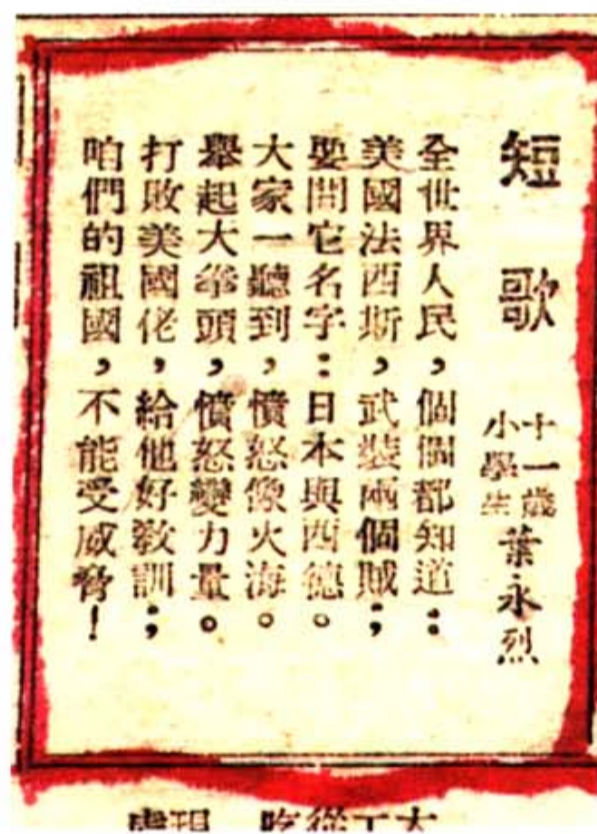 短歌
十一歲
小學生
葉永烈
全世界人民，個個都知道：
美國法西斯，武裝兩個賊；
要問它名字：日本與西德。
大家一聽到，憤怒像火海。
舉起大拳頭，憤怒變力量。
打敗美國佬，給他好教訓；
咱們的祖國，不能受威脅！